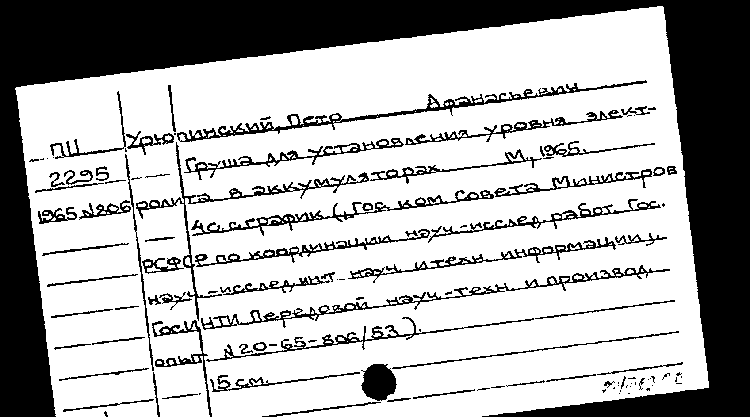 ПII Урюпинский, Петр Афанасьевич
2295 Груша для установления уровня элект-
1965 №206 ролита в аккумуляторах. М., 1965.
4с. с график (,,Гос. ком. Совета Министров
РСФСР по координации науч.-исслед. работ. Гос.
науч.-исслед. ин-т науч. и техн. информации,,.
ГосИНТИ Передовой науч.-техн. и производ.
опыт. №20-65-806/53).
15 см.